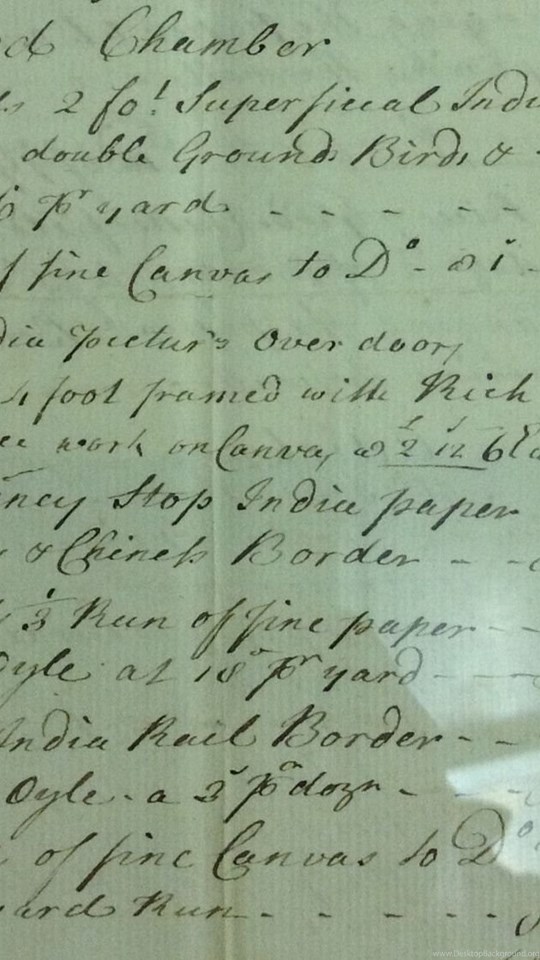 d Chamber
2 fot Superficial Indi
double Ground Birds &
pr yard - - - - -
f fine Canvas to Do - at 1s -
dia Pictur's Over doors
4 foot framed with Rich
work on Canvas a 2 12 6 Ea
ncy Stop India paper
& Chiness Border - -
1/3 Run of fine paper - -
Oyle at 18d pr yard - -
India Rail Border - -
Oyle - a 3s pr dozn - - -
of fine Canvas to Do
ard Run - - - - -
www.DesktopBackground.org